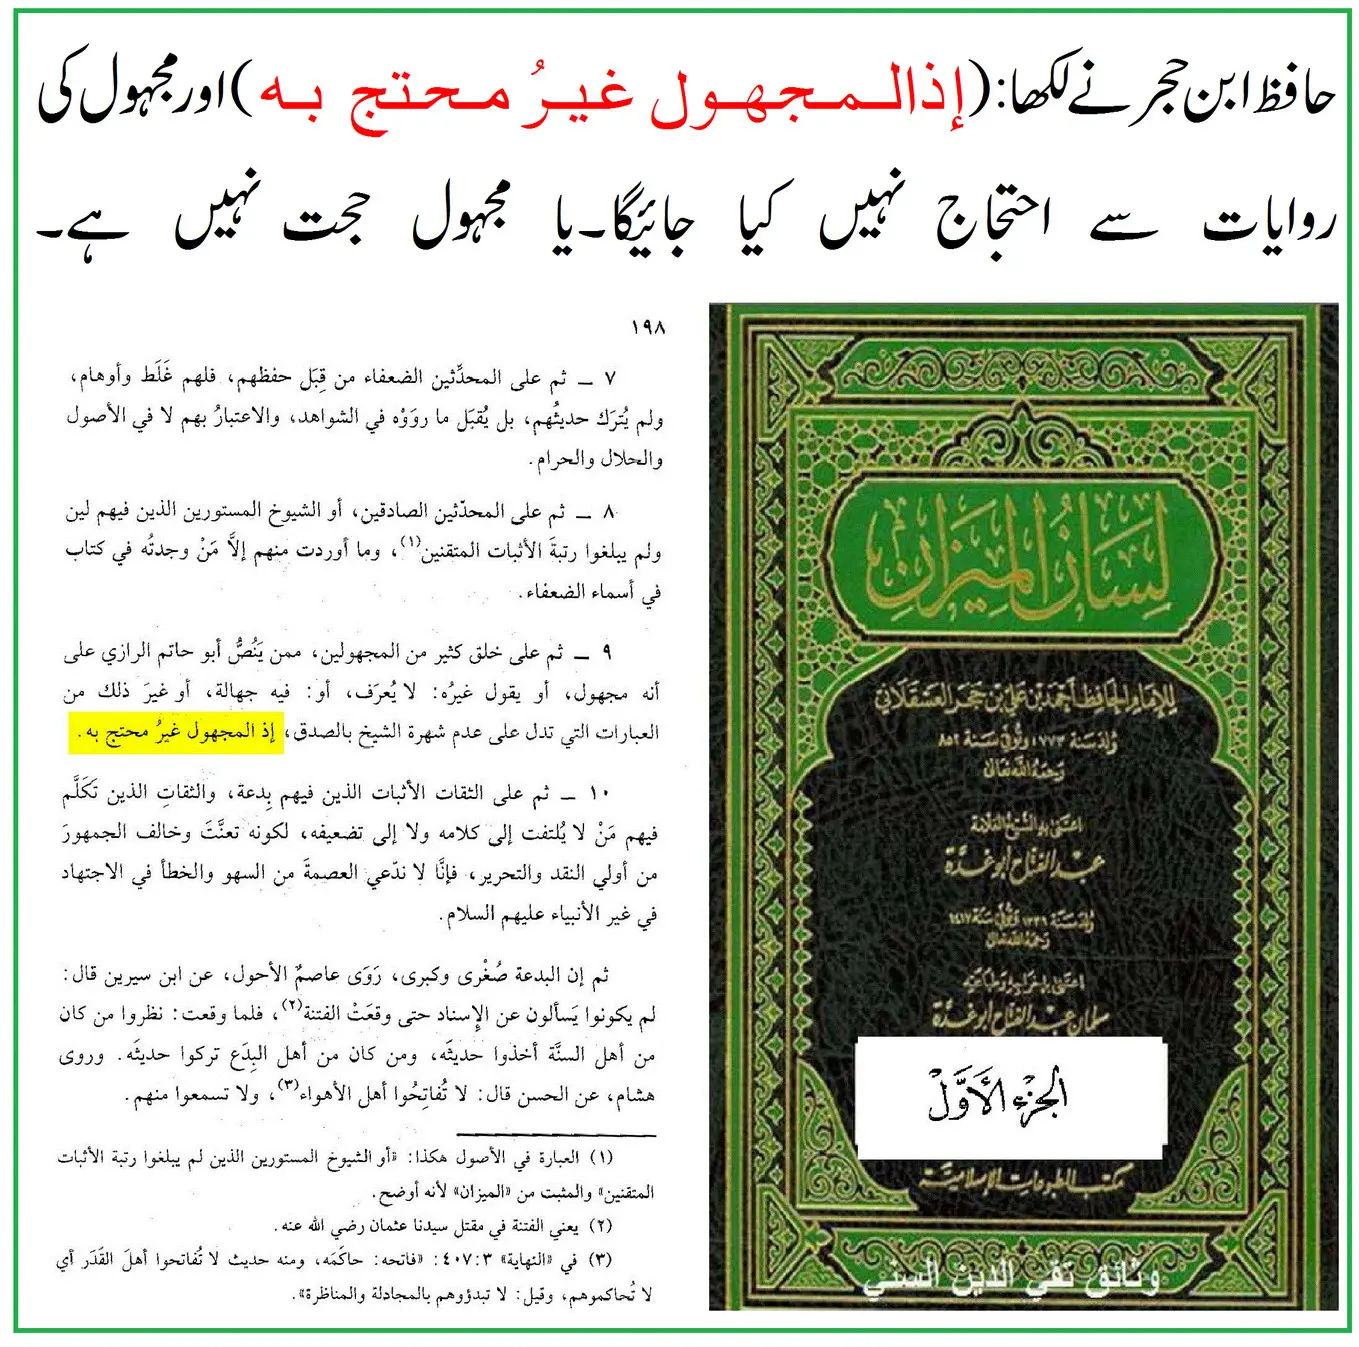 حافظ ابن حجر نے لکھا: (إذالمجهول غيرُ محتج به) اور مجہول کی
روایات سے احتجاج نہیں کیا جائیگا۔ یا مجہول حجت نہیں ہے۔
١٩٨
٧ ــ ثم على المحدِّثين الضعفاء من قِبَل حفظهم، فلهم غَلَط وأوهام،
ولم يُترَك حديثُهم، بل يُقبَل ما روَوْه في الشواهد، والاعتبارُ بهم لا في الأصول
والحلال والحرام.
٨ ــ ثم على المحدّثين الصادقين، أو الشيوخ المستورين الذين فيهم لين
ولم يبلغوا رتبةَ الأثبات المتقنين(١)، وما أوردت منهم إلَّا مَنْ وجدتُه في كتاب
في أسماء الضعفاء.
٩ ــ ثم على خلق كثير من المجهولين، ممن يَنُصُّ أبو حاتم الرازي على
أنه مجهول، أو يقول غيرُه: لا يُعرَف، أو: فيه جهالة، أو غيرَ ذلك من
العبارات التي تدل على عدم شهرة الشيخ بالصدق، إذ المجهول غيرُ محتج به.
١٠ ــ ثم على الثقات الأثبات الذين فيهم بِدعة، والثقاتِ الذين تَكَلَّم
فيهم مَنْ لا يُلتفت إلى كلامه ولا إلى تضعيفه، لكونه تعنَّتَ وخالف الجمهورَ
من أولي النقد والتحرير، فإنَّا لا ندّعي العصمةَ من السهو والخطأ في الاجتهاد
في غير الأنبياء عليهم السلام.
ثم إن البدعة صُغْرى وكبرى، رَوَى عاصمٌ الأحول، عن ابن سيرين قال:
لم يكونوا يَسألون عن الإسناد حتى وقعَتْ الفتنة(٢)، فلما وقعت: نظروا من كان
من أهل السنَّة أخذوا حديثَه، ومن كان من أهل البِدَع تركوا حديثَه. وروى
هشام، عن الحسن قال: لا تُفاتِحُوا أهل الأهواء(٣)، ولا تسمعوا منهم.
(١) العبارة في الأصول هكذا: «أو الشيوخ المستورين الذين لم يبلغوا رتبة الأثبات
المتقنين» والمثبت من «الميزان» لأنه أوضح.
(٢) يعني الفتنة في مقتل سيدنا عثمان رضي الله عنه.
(٣) في «النهاية» ٣:٤٠٧: «فاتحه: حاكَمَه، ومنه حديث لا تُفاتحوا أهلَ القَدَر أي
لا تُحاكموهم، وقيل: لا تبدؤوهم بالمجادلة والمناظرة».
لسان الميزان
للإمام الحافظ أحمد بن علي بن حجر العسقلاني
ولد سنة ٧٧٣، وتوفي سنة ٨٥٢
رحمه الله تعالى
اعتنى به الشيخ العلامة
عبد الفتاح أبو غدة
ولد سنة ١٣٣٦ وتوفي سنة ١٤١٧
رحمه الله تعالى
اعتنى بإخراجه وطباعته
سلمان عبد الفتاح أبو غدة
الجزء الأول
مكتب المطبوعات الإسلامية
وثائق تقي الدين السني